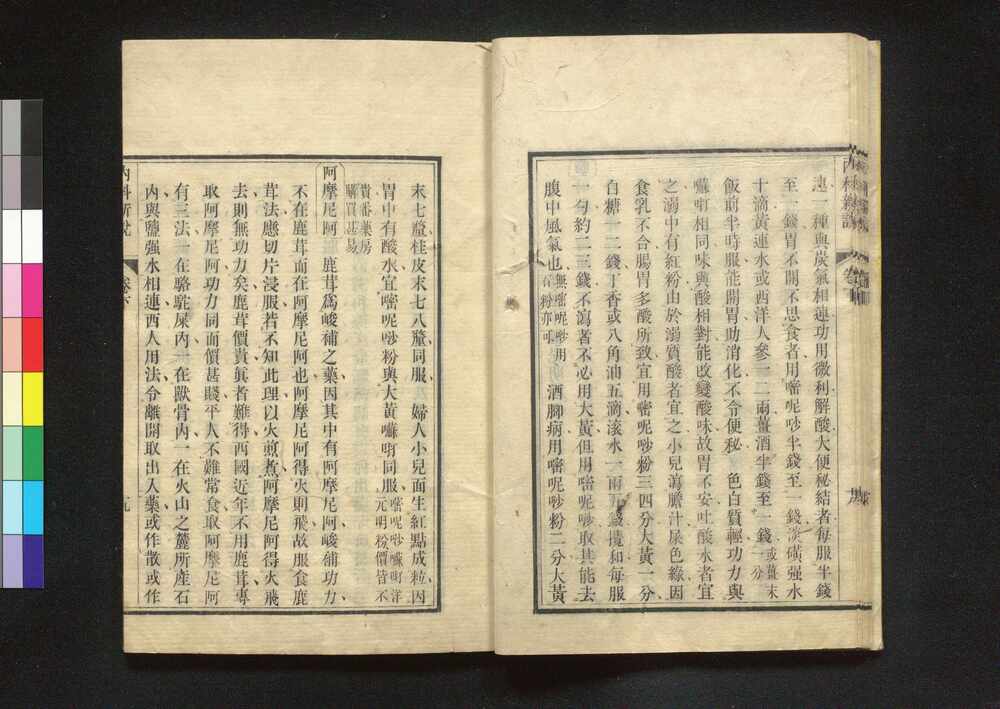 連一種與炭氣相連功用微利解酸大便秘結者每服半錢
至一錢胃不開不思食者用嘧呢唦半錢至一錢淡磺强水
十滴黃連水或西洋人參一二兩薑酒半錢至一錢或薑末一分
飯前半時服能開胃助消化不令便秘 色白質輕功力與
囌呀相同味與酸相對能改變酸味故胃不安吐酸水者宜
之溺中有紅粉由於溺質酸者宜之小兒瀉膽汁屎色綠因
食乳不合腸胃多酸所致宜用嘧呢唦粉三四分大黃一分
白糖一二錢丁香或八角油五滴滾水一兩五錢攪和每服
一勺約二三錢不瀉者不必用大黃但用嘧呢唦取其能去
腹中風氣也無嘧呢唦用石粉亦可 酒腳病用嘧呢唦粉二分大黃
末七釐桂皮末七八釐同服 婦人小兒面生紅點成粒因
胃中有酸水宜嘧呢唦粉與大黃囌呀同服嘧呢唦囌呀洋元明粉價皆不
貴番藥房購買甚易
阿摩尼阿 鹿茸爲峻補之藥因其中有阿摩尼阿峻補功力
不在鹿茸而在阿摩尼阿也阿摩尼阿得火則飛故服食鹿
茸法應切片浸服若不知此理以火煎煮阿摩尼阿得火飛
去則無功力矣鹿茸價貴眞者難得西國近年不用鹿茸專
取阿摩尼阿功力同而價甚賤平人不難常食取阿摩尼阿
有三法一在駱駝屎內一在獸骨內一在火山之麓所產石
內與鹽强水相連西人用法令離開取出入藥或作散或作
內科新說 卷下 九